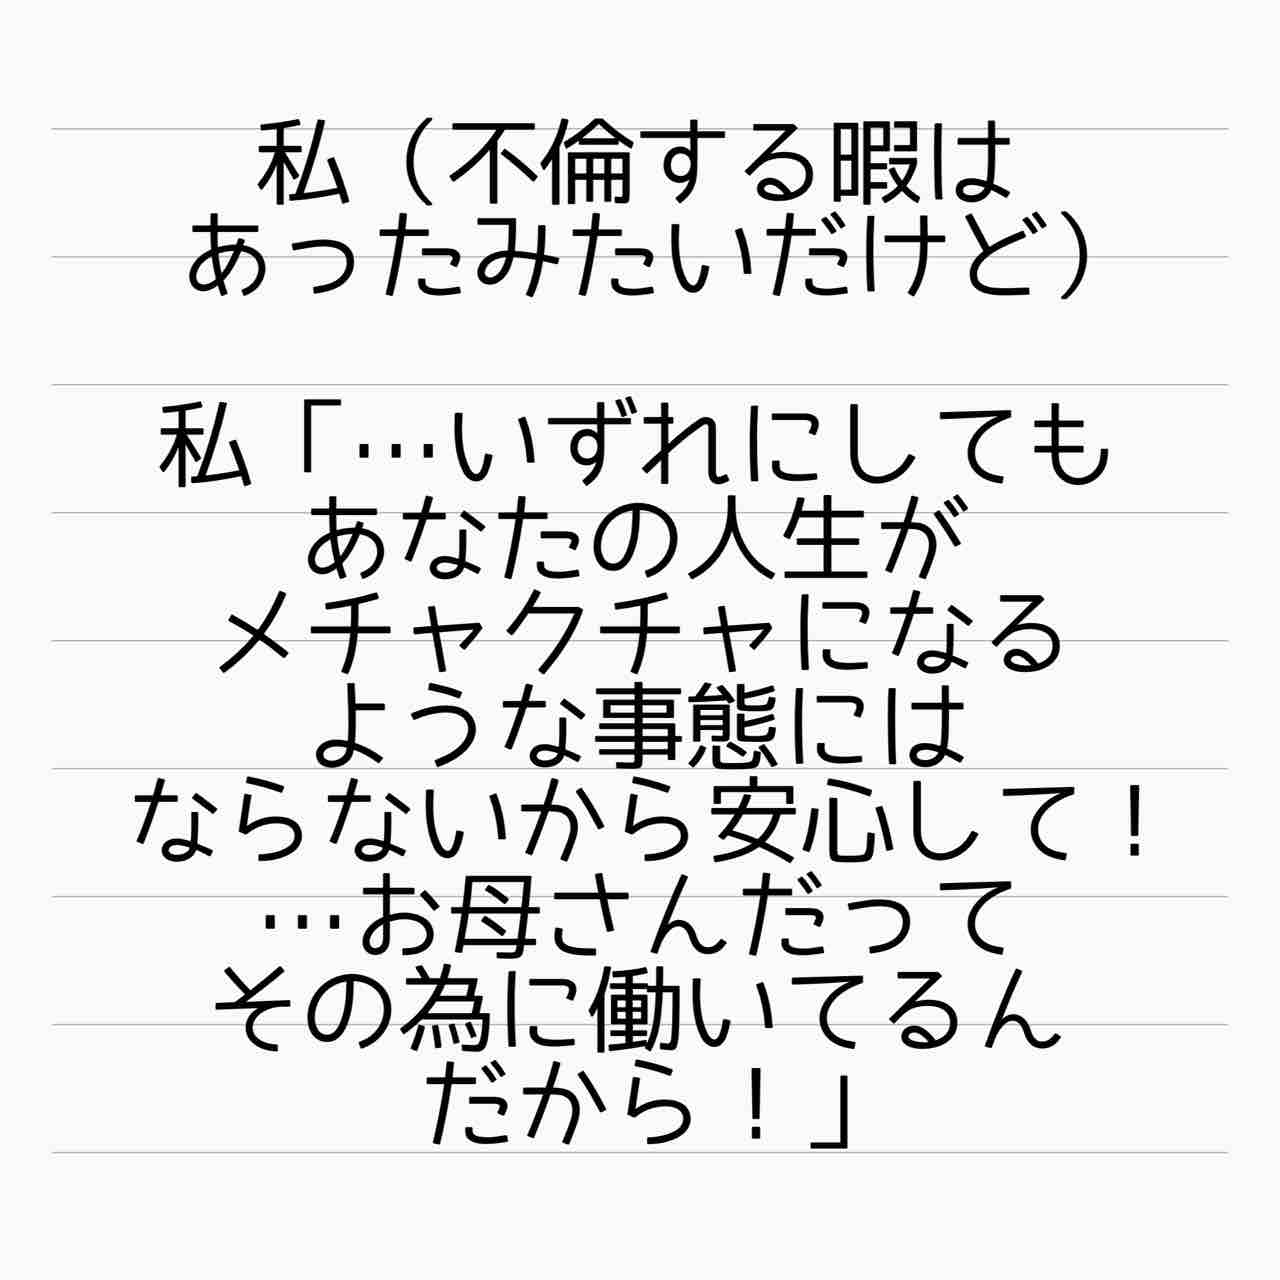 私（不倫する暇は
あったみたいだけど）
私「…いずれにしても
あなたの人生が
メチャクチャになる
ような事態には
ならないから安心して！
…お母さんだって
その為に働いてるん
だから！」